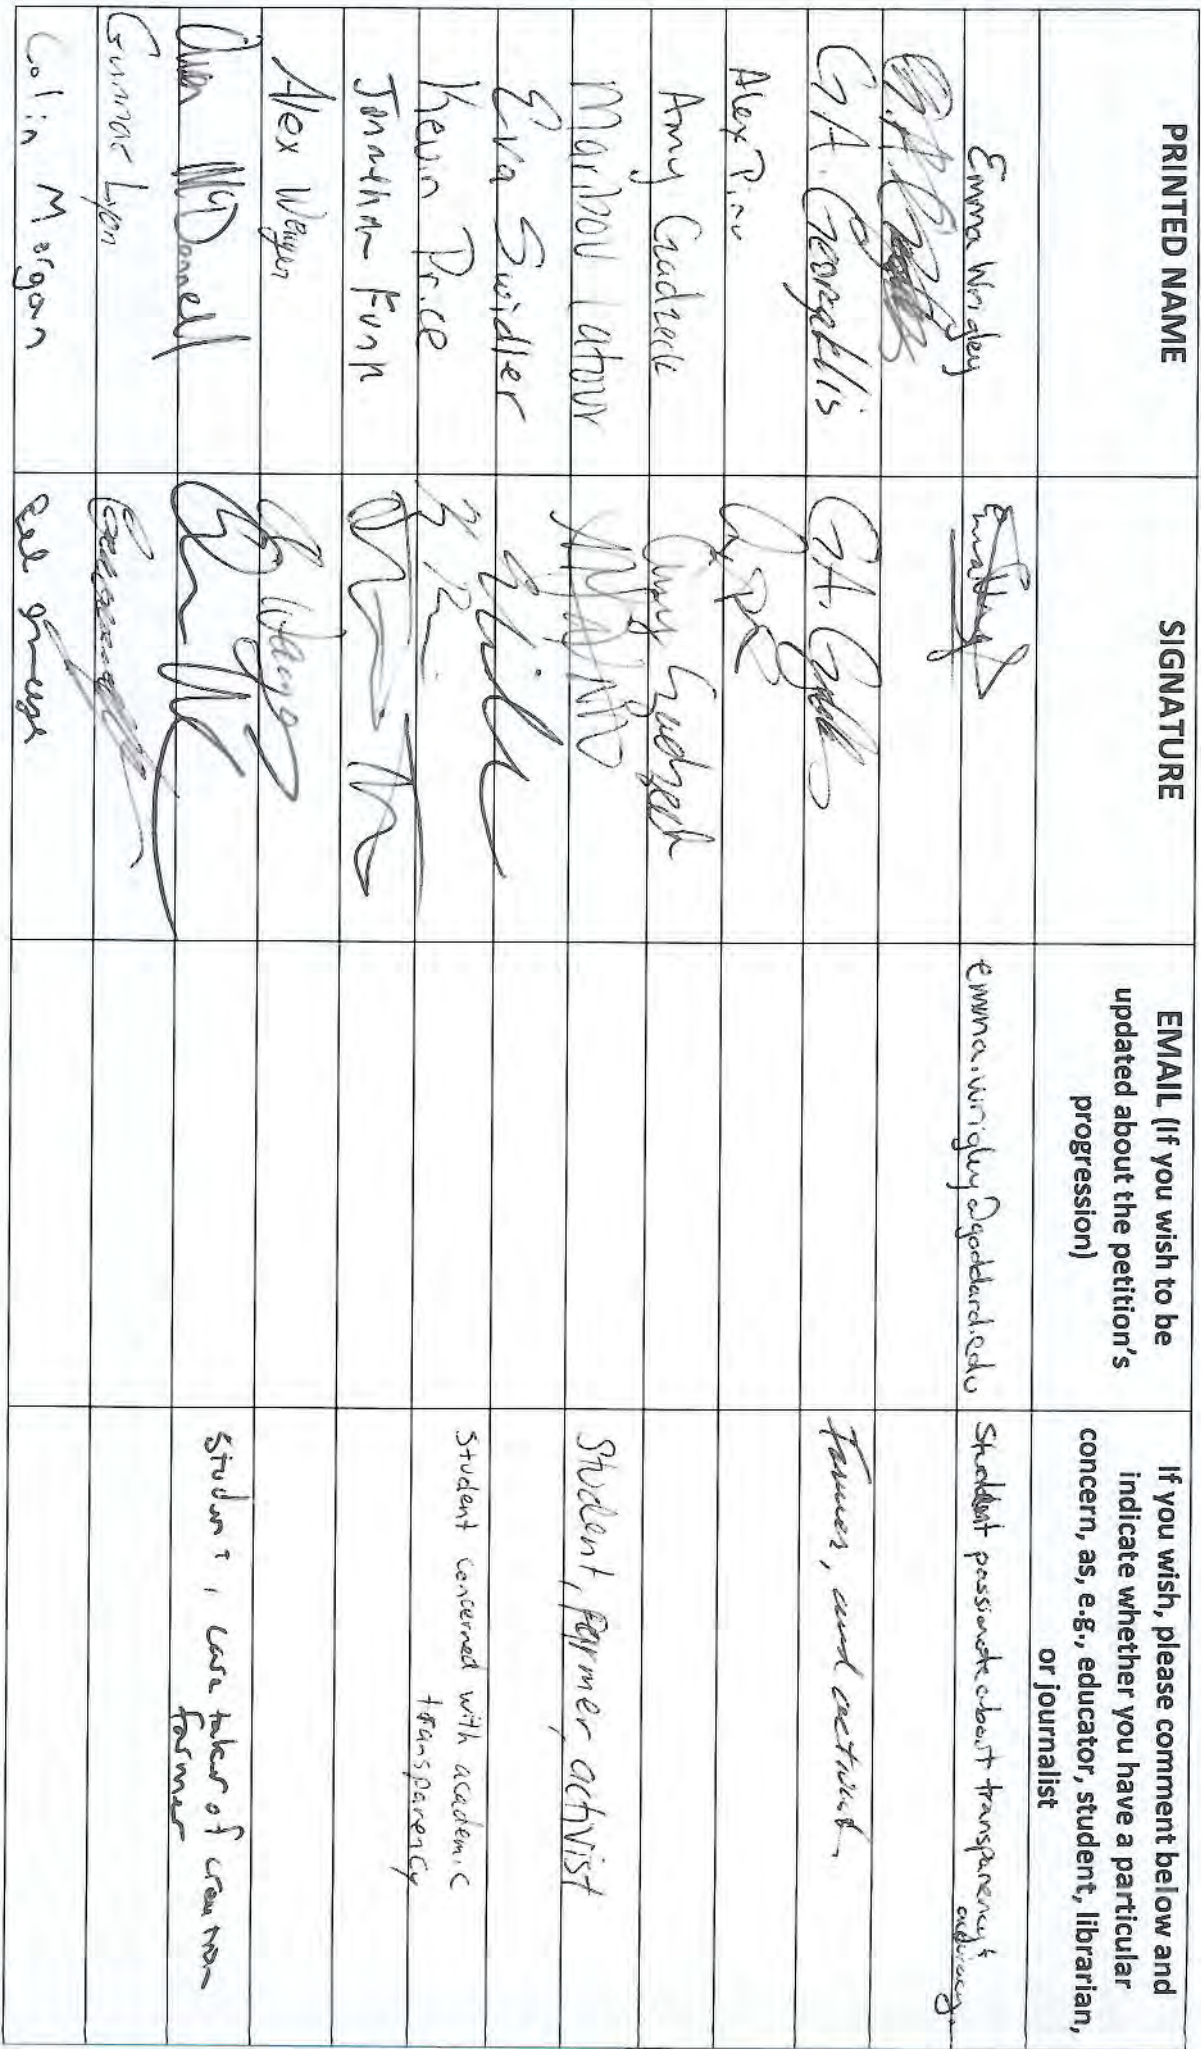 PRINTED NAME
SIGNATURE
EMAIL (If you wish to be
updated about the petition's
progression)
If you wish, please comment below and
indicate whether you have a particular
concern, as, e.g., educator, student, librarian,
or journalist
Emma Wrigley
emma.wrigley@goddard.edu
Student passionate about transparency &
G.A. Georgellis
G.A.
Farmer, and activist
Alex
Amy
Amy
Maribou Latour
Student, farmer, activist
Eva Swidler
Kevin Price
Student concerned with academic
transparency
Jonathan Funk
Alex Wenger
McDonnell
Student, care taker of creation
farmer
Gunnar Lyon
Colin Morgan